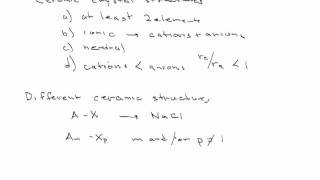 Ceramic crystal structures
a) at least 2 element
b) ionic → cations + anions
c) neutral
d) cations < anions rc/ra < 1
Different ceramic structures
A-X → NaCl
Am-Xp m and/or p ≠ 1